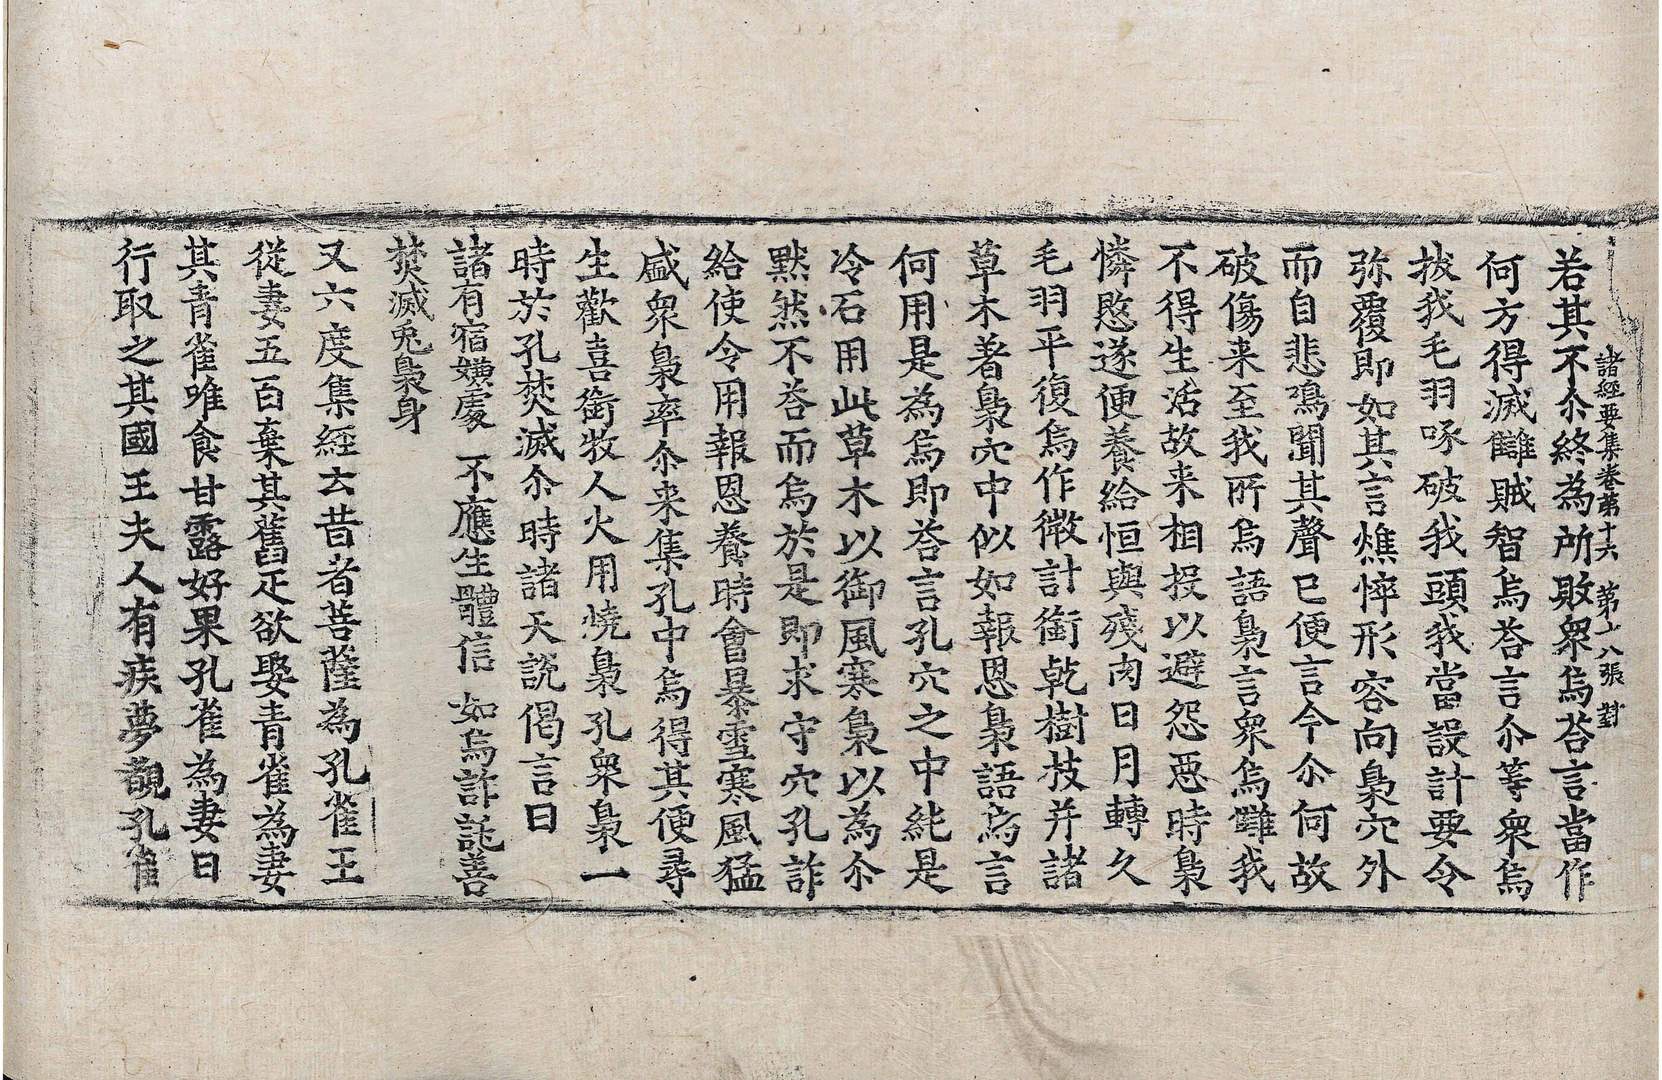 諸經要集卷第十六　第十八張　對
若其不尒終為所敗衆烏荅言當作
何方得滅讎賊智烏荅言尒等衆烏
拔我毛羽啄破我頭我當設計要令
弥覆即如其言燋悴形容向梟穴外
而自悲鳴聞其聲已便言今尒何故
破傷来至我所烏語梟言衆烏讎我
不得生活故来相投以避怨惡時梟
憐愍遂便養給恒與殘肉日月轉久
毛羽平復烏作微計銜乾樹枝并諸
草木著梟穴中似如報恩梟語烏言
何用是為烏即荅言孔穴之中純是
冷石用此草木以御風寒梟以為尒
黙然不荅而烏於是即求守穴孔詐
給使令用報恩養時會暴雪寒風猛
盛衆梟率尒来集孔中烏得其便尋
生歡喜銜牧人火用燒梟孔衆梟一
時於孔焚滅尒時諸天說偈言曰
諸有宿嫌處　不應生體信　如烏詐託善
焚滅兎梟身
又六度集經云昔者菩薩為孔雀王
從妻五百棄其舊疋欲娶青雀為妻
其青雀唯食甘露好果孔雀為妻日
行取之其國王夫人有疾夢覩孔雀